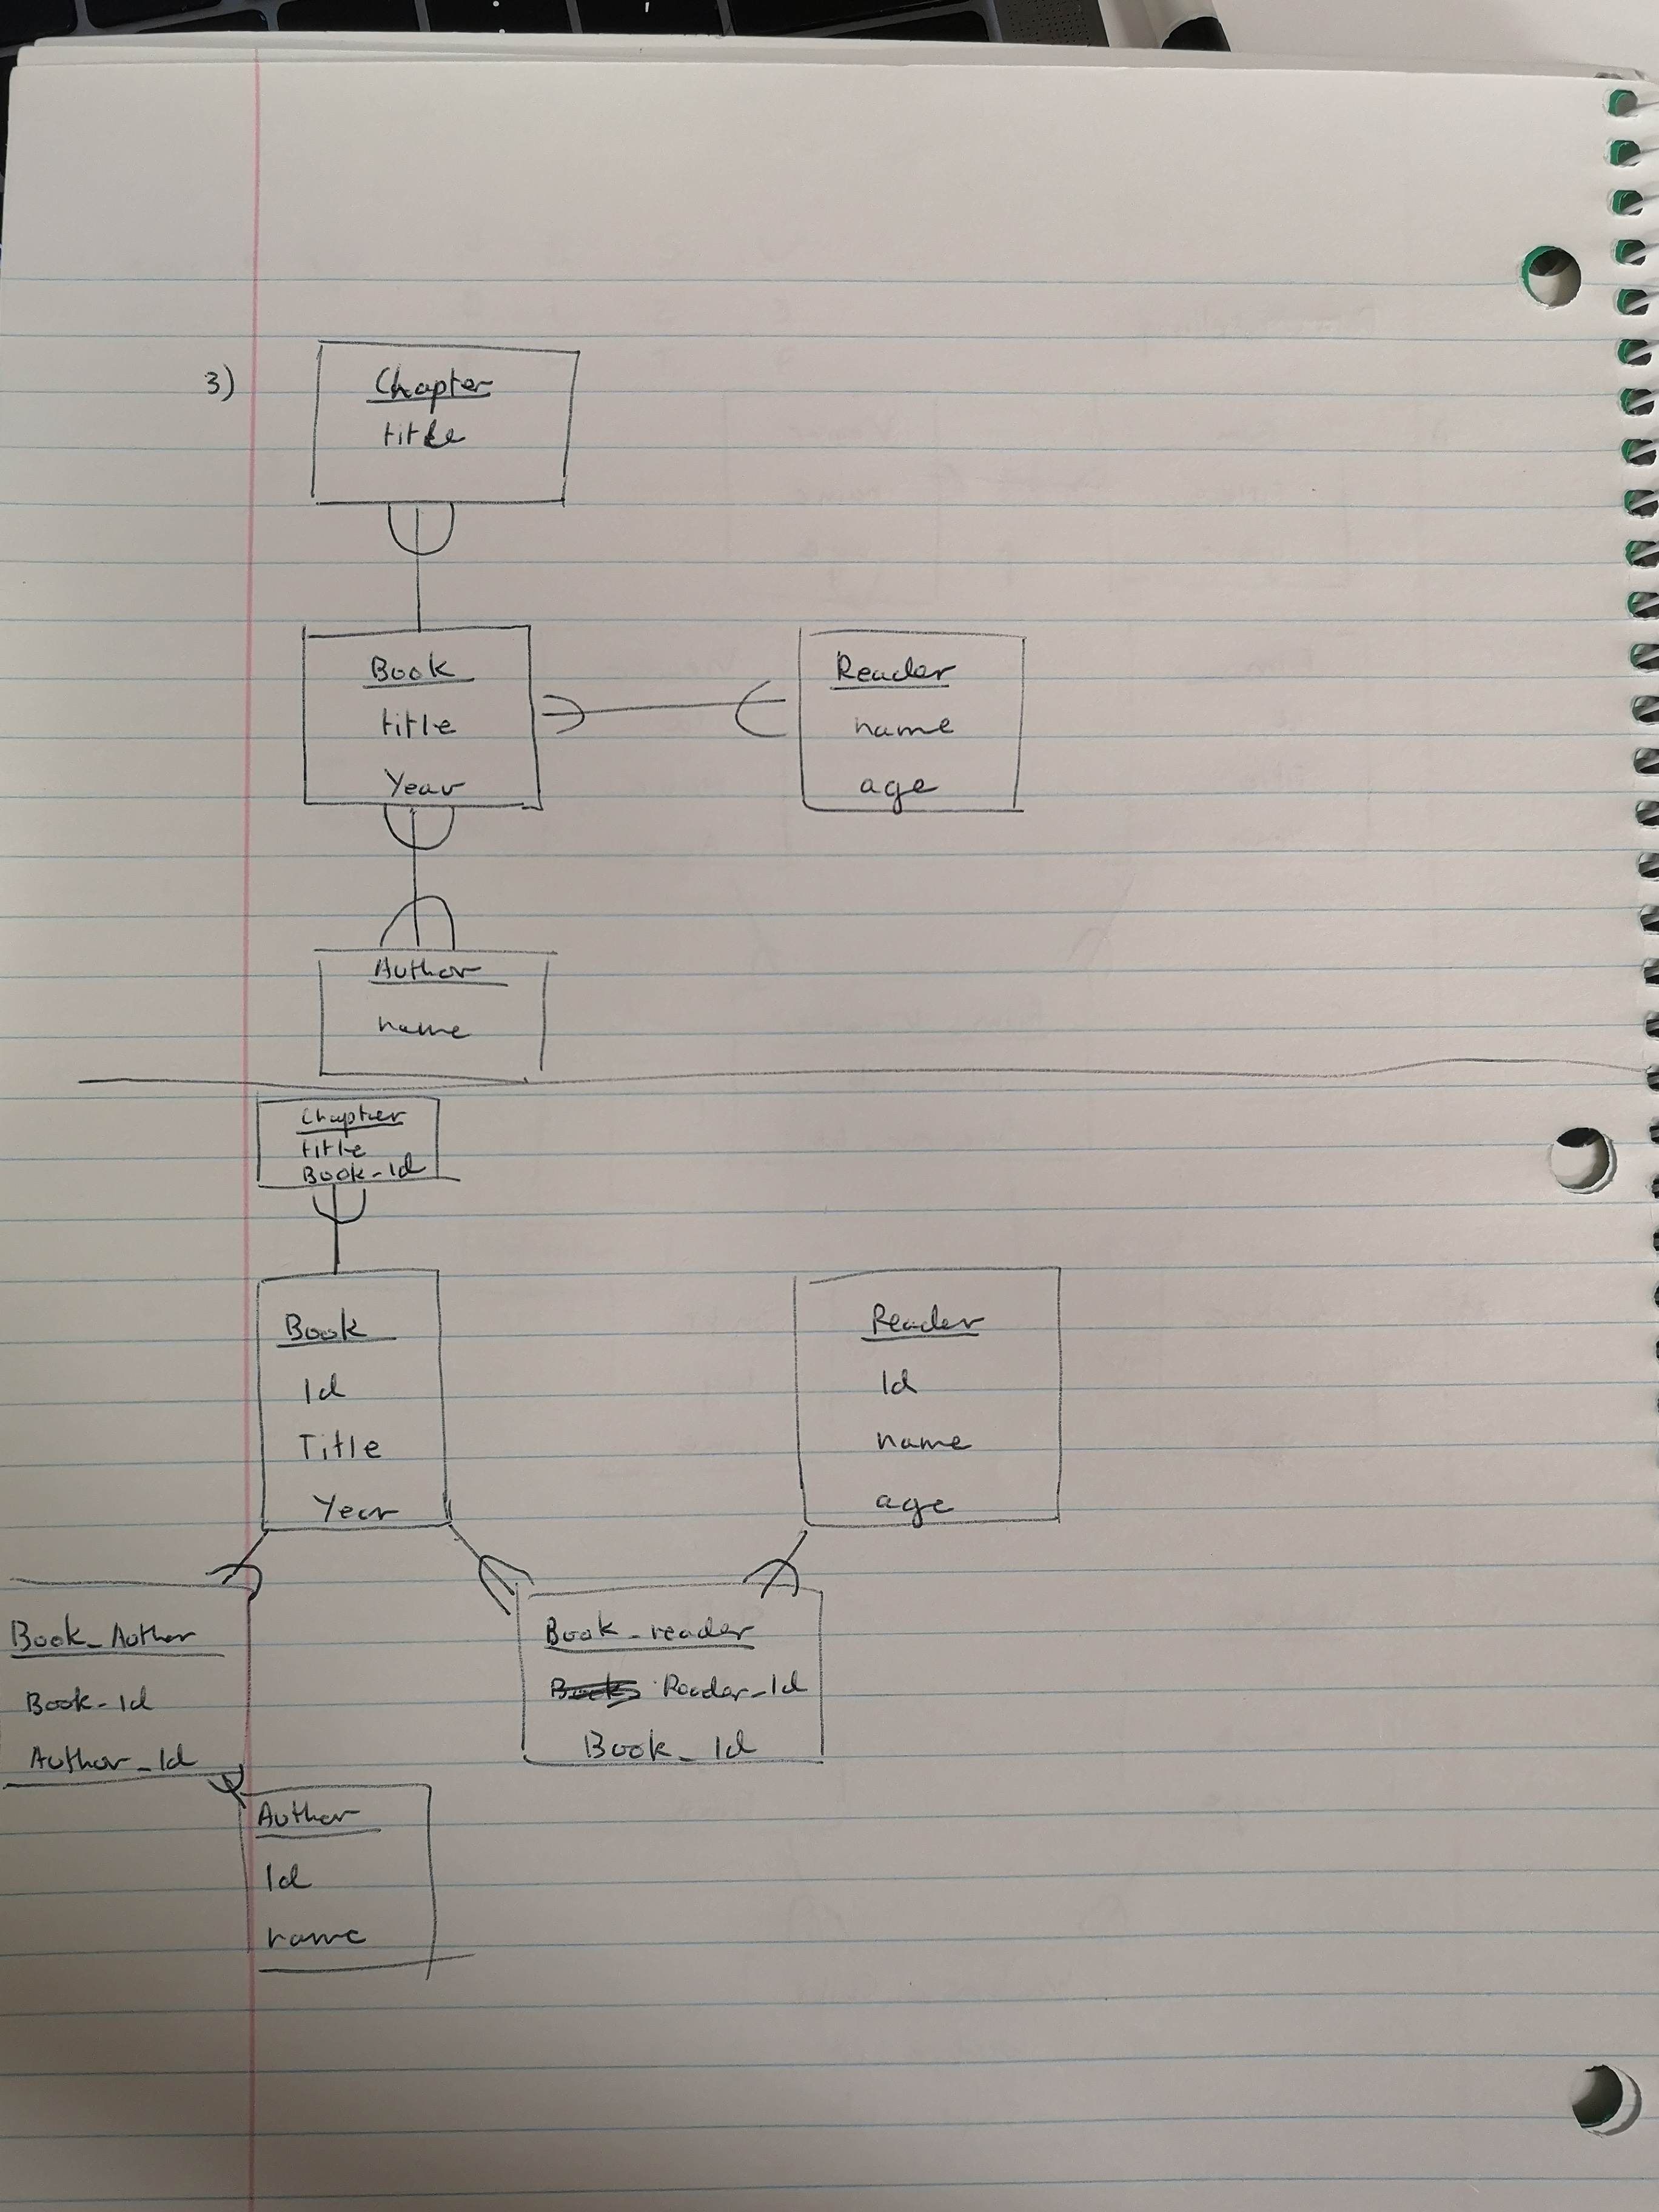 3)
Chapter
title
Book
title
Year
Reader
name
age
Author
name
Chapter
title
Book-Id
Book
Id
Title
Year
Reader
Id
name
age
Book_Author
Book-Id
Author_Id
Book_reader
Reader_Id
Book_Id
Author
Id
name